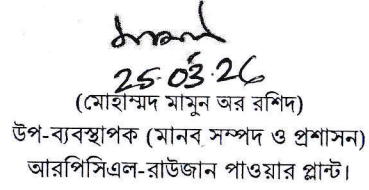 25.03.26
(মোহাম্মদ মামুন অর রশিদ)
উপ-ব্যবস্থাপক (মানব সম্পদ ও প্রশাসন)
আরপিসিএল-রাউজান পাওয়ার প্লান্ট।